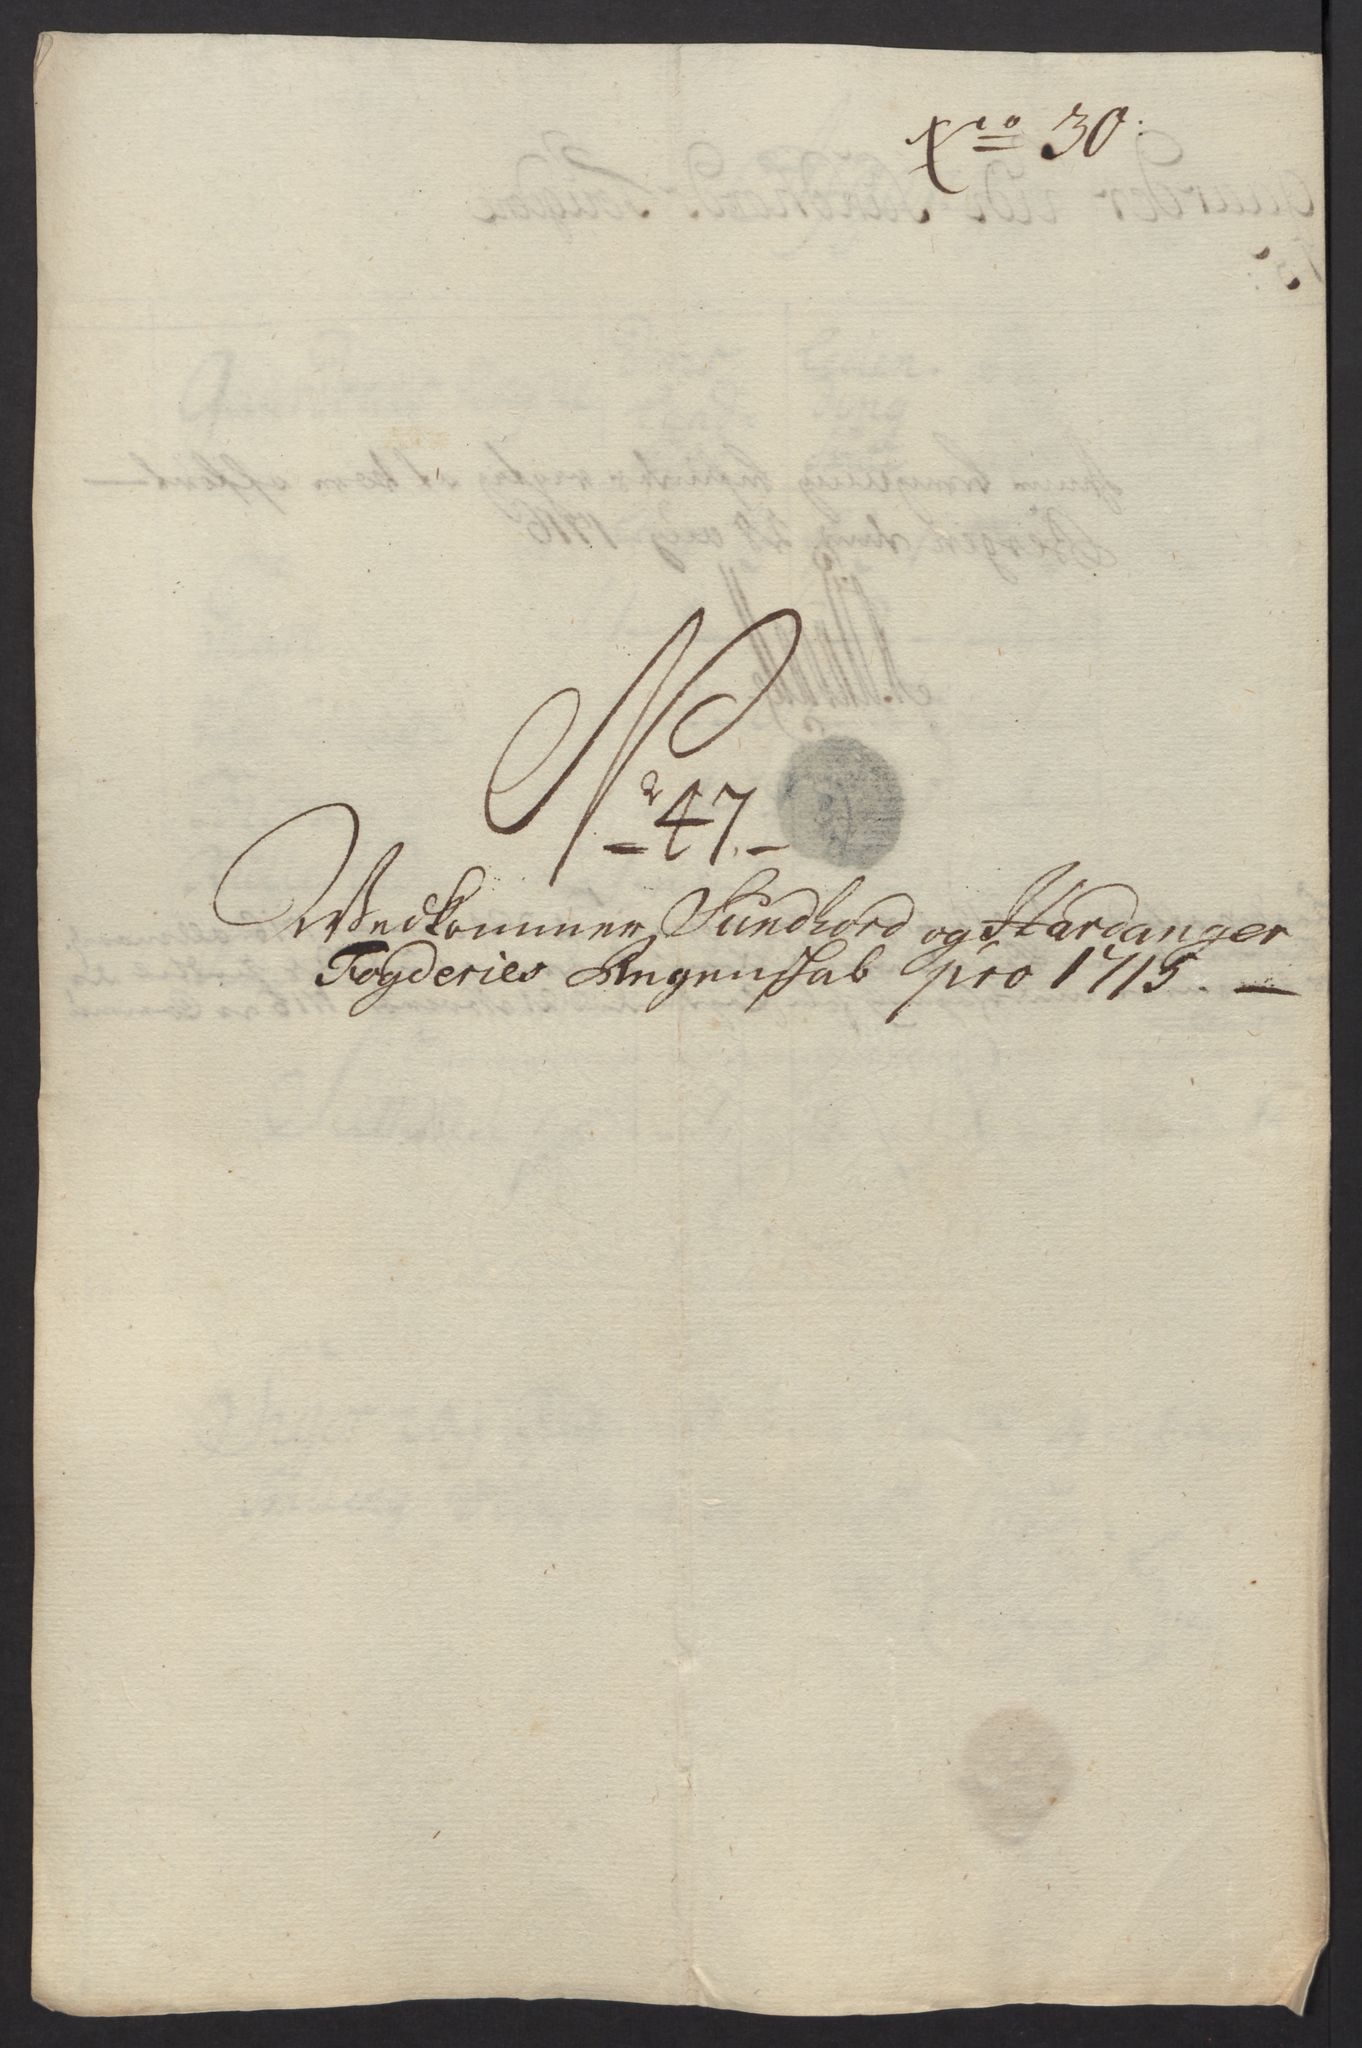 Xto 30.
No 47.
Wedkommer Sundhord og Hardanger
Fogderies Regenskab pro 1715.